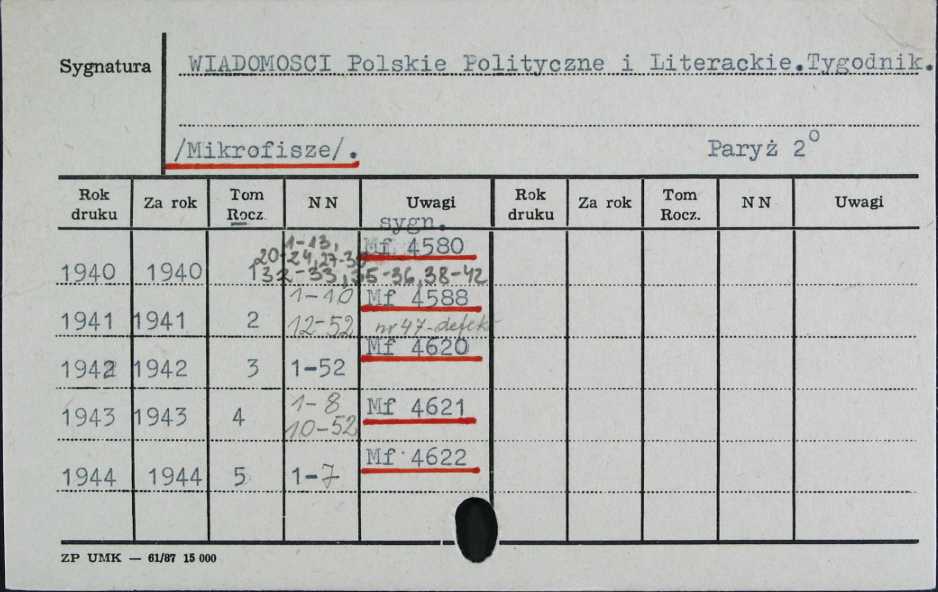 Sygnatura
WIADOMOSCI Polskie Polityczne i Literackie.Tygodnik.
/Mikrofisze/. Paryż 2⁰
Rok druku Za rok Tom Rocz. NN Uwagi Rok druku Za rok Tom Rocz. NN Uwagi
sygn.
1-13, Mf 4580
20-24,27-30
1940 1940 1 32-33,35-36,38-42
1-10 Mf 4588
1941 1941 2 12-52 nr 47-defekt
Mf 4620
1942 1942 3 1-52
1-8 Mf 4621
1943 1943 4 10-52
Mf 4622
1944 1944 5 1-7
ZP UMK — 61/87 15 000